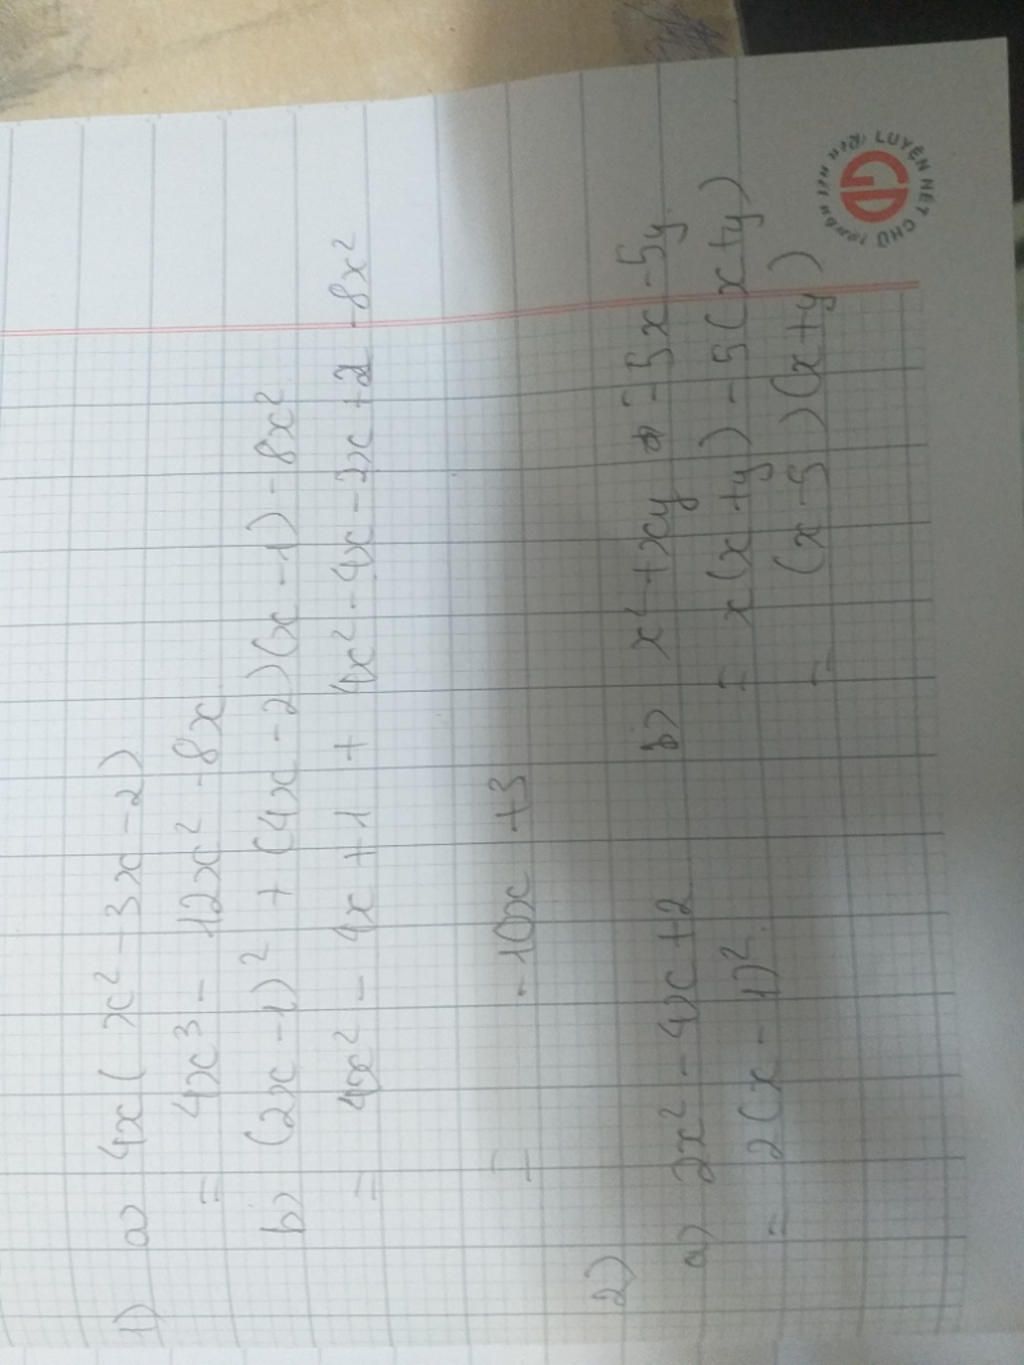 1) a) 4x( x² - 3x - 2)
= 4x³ - 12x² - 8x
b) (2x - 1)² + (4x - 2)(x - 1) - 8x²
= 4x² - 4x + 1 + 4x² - 4x - 2x + 2 - 8x²
= - 10x + 3
2)
a) 2x² - 4x + 2
= 2(x - 1)².
b) x² + xy - 5x - 5y
= x(x + y) - 5(x + y)
= (x - 5)(x + y)
LUYỆN NÉT CHỮ
GD